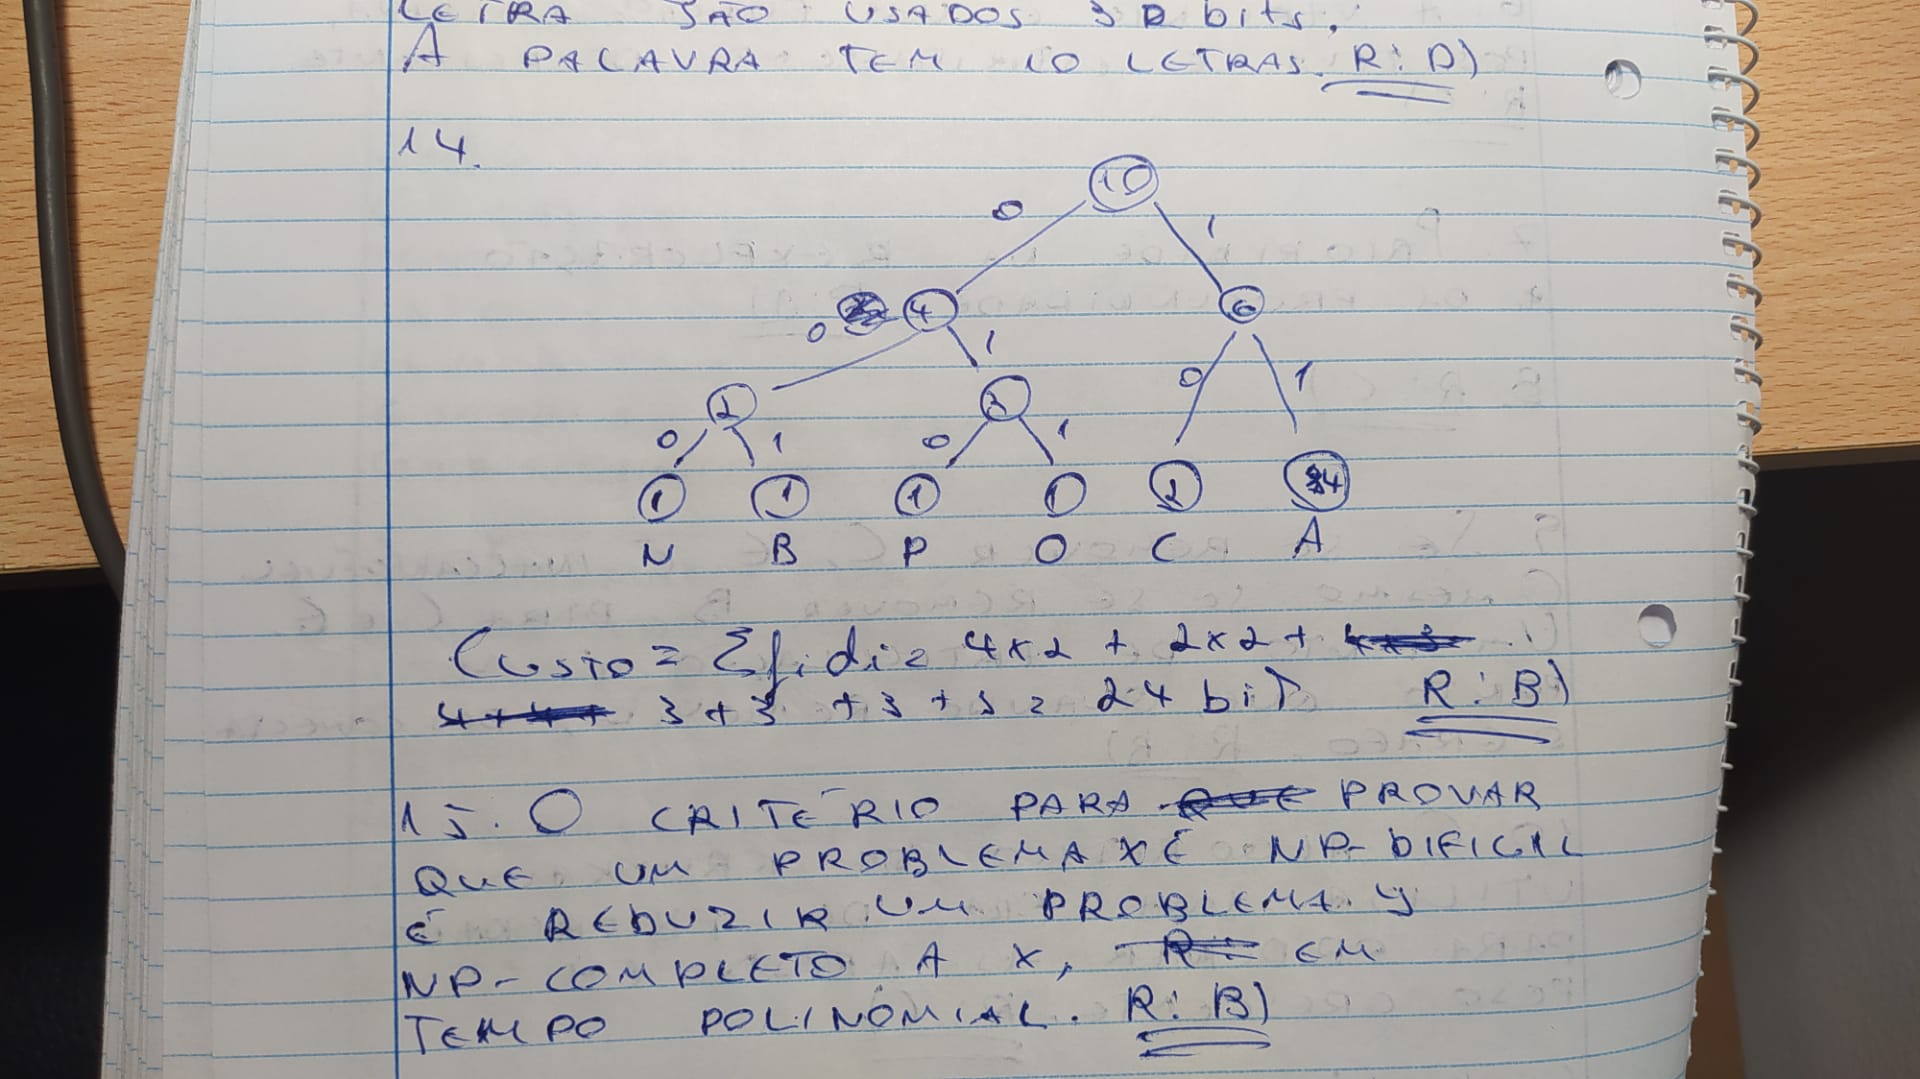 LETRA SÃO USADOS 3 bits.
A PALAVRA TEM 10 LETRAS. R: D)
14.
10
0 1
4 6
0 1 0 1
2 3
0 1 0 1
1 1 1 1 2 4
N B P O C A
CUSTO = Σfidi = 4x2 + 2x2 +
3 + 3 + 3 + 3 = 24 bit R: B)
15. O CRITÉRIO PARA QUE PROVAR
QUE UM PROBLEMA X É NP-DIFICIL
É REDUZIR UM PROBLEMA Y
NP-COMPLETO A X, R: EM
TEMPO POLINOMIAL. R: B)